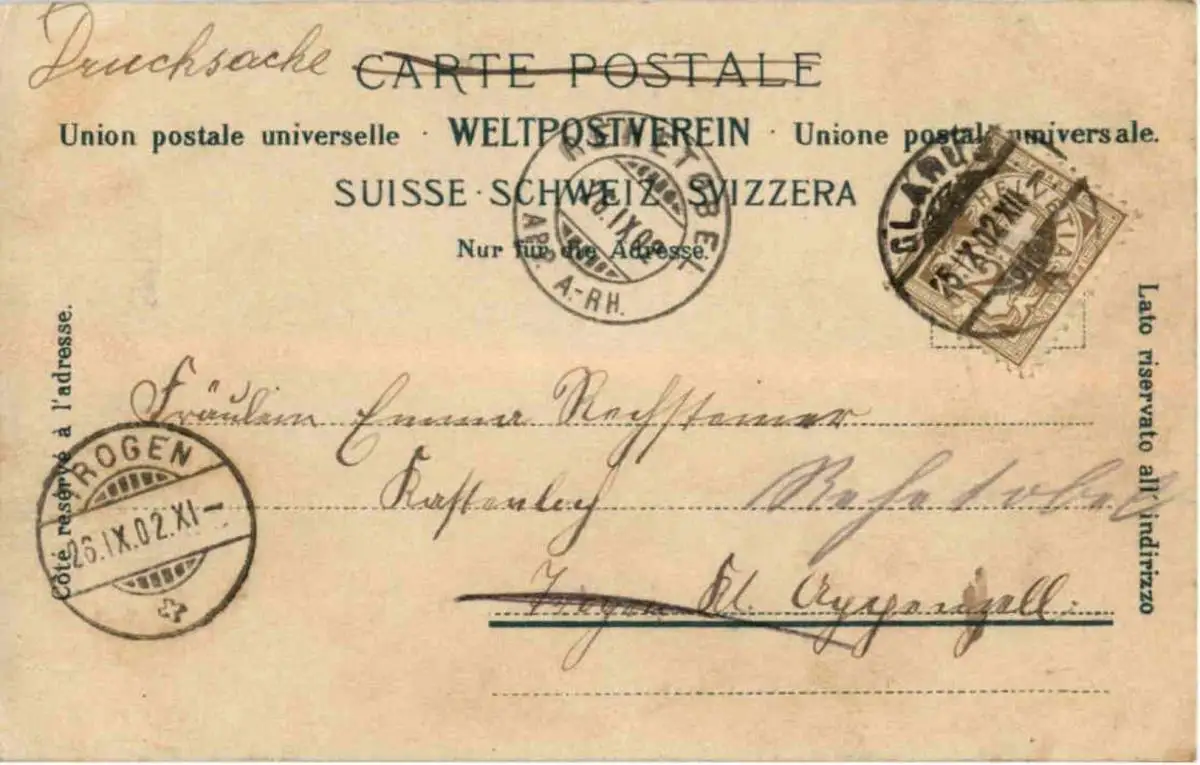 Drucksache
CARTE POSTALE
Union postale universelle · WELTPOSTVEREIN · Unione postale universale.
SUISSE · SCHWEIZ · SVIZZERA
Nur für die Adresse.
REHETOBEL
26.IX.02
APP. A.-RH.
GLARUS
25.IX.02.XII
HELVETIA
2
Côté réservé à l'adresse.
Lato riservato all' indirizzo
Fräulein Emma Rechsteiner
Kastenloch Rehetobel
Trogen Kt. Appenzell.
TROGEN
26.IX.02.XI–